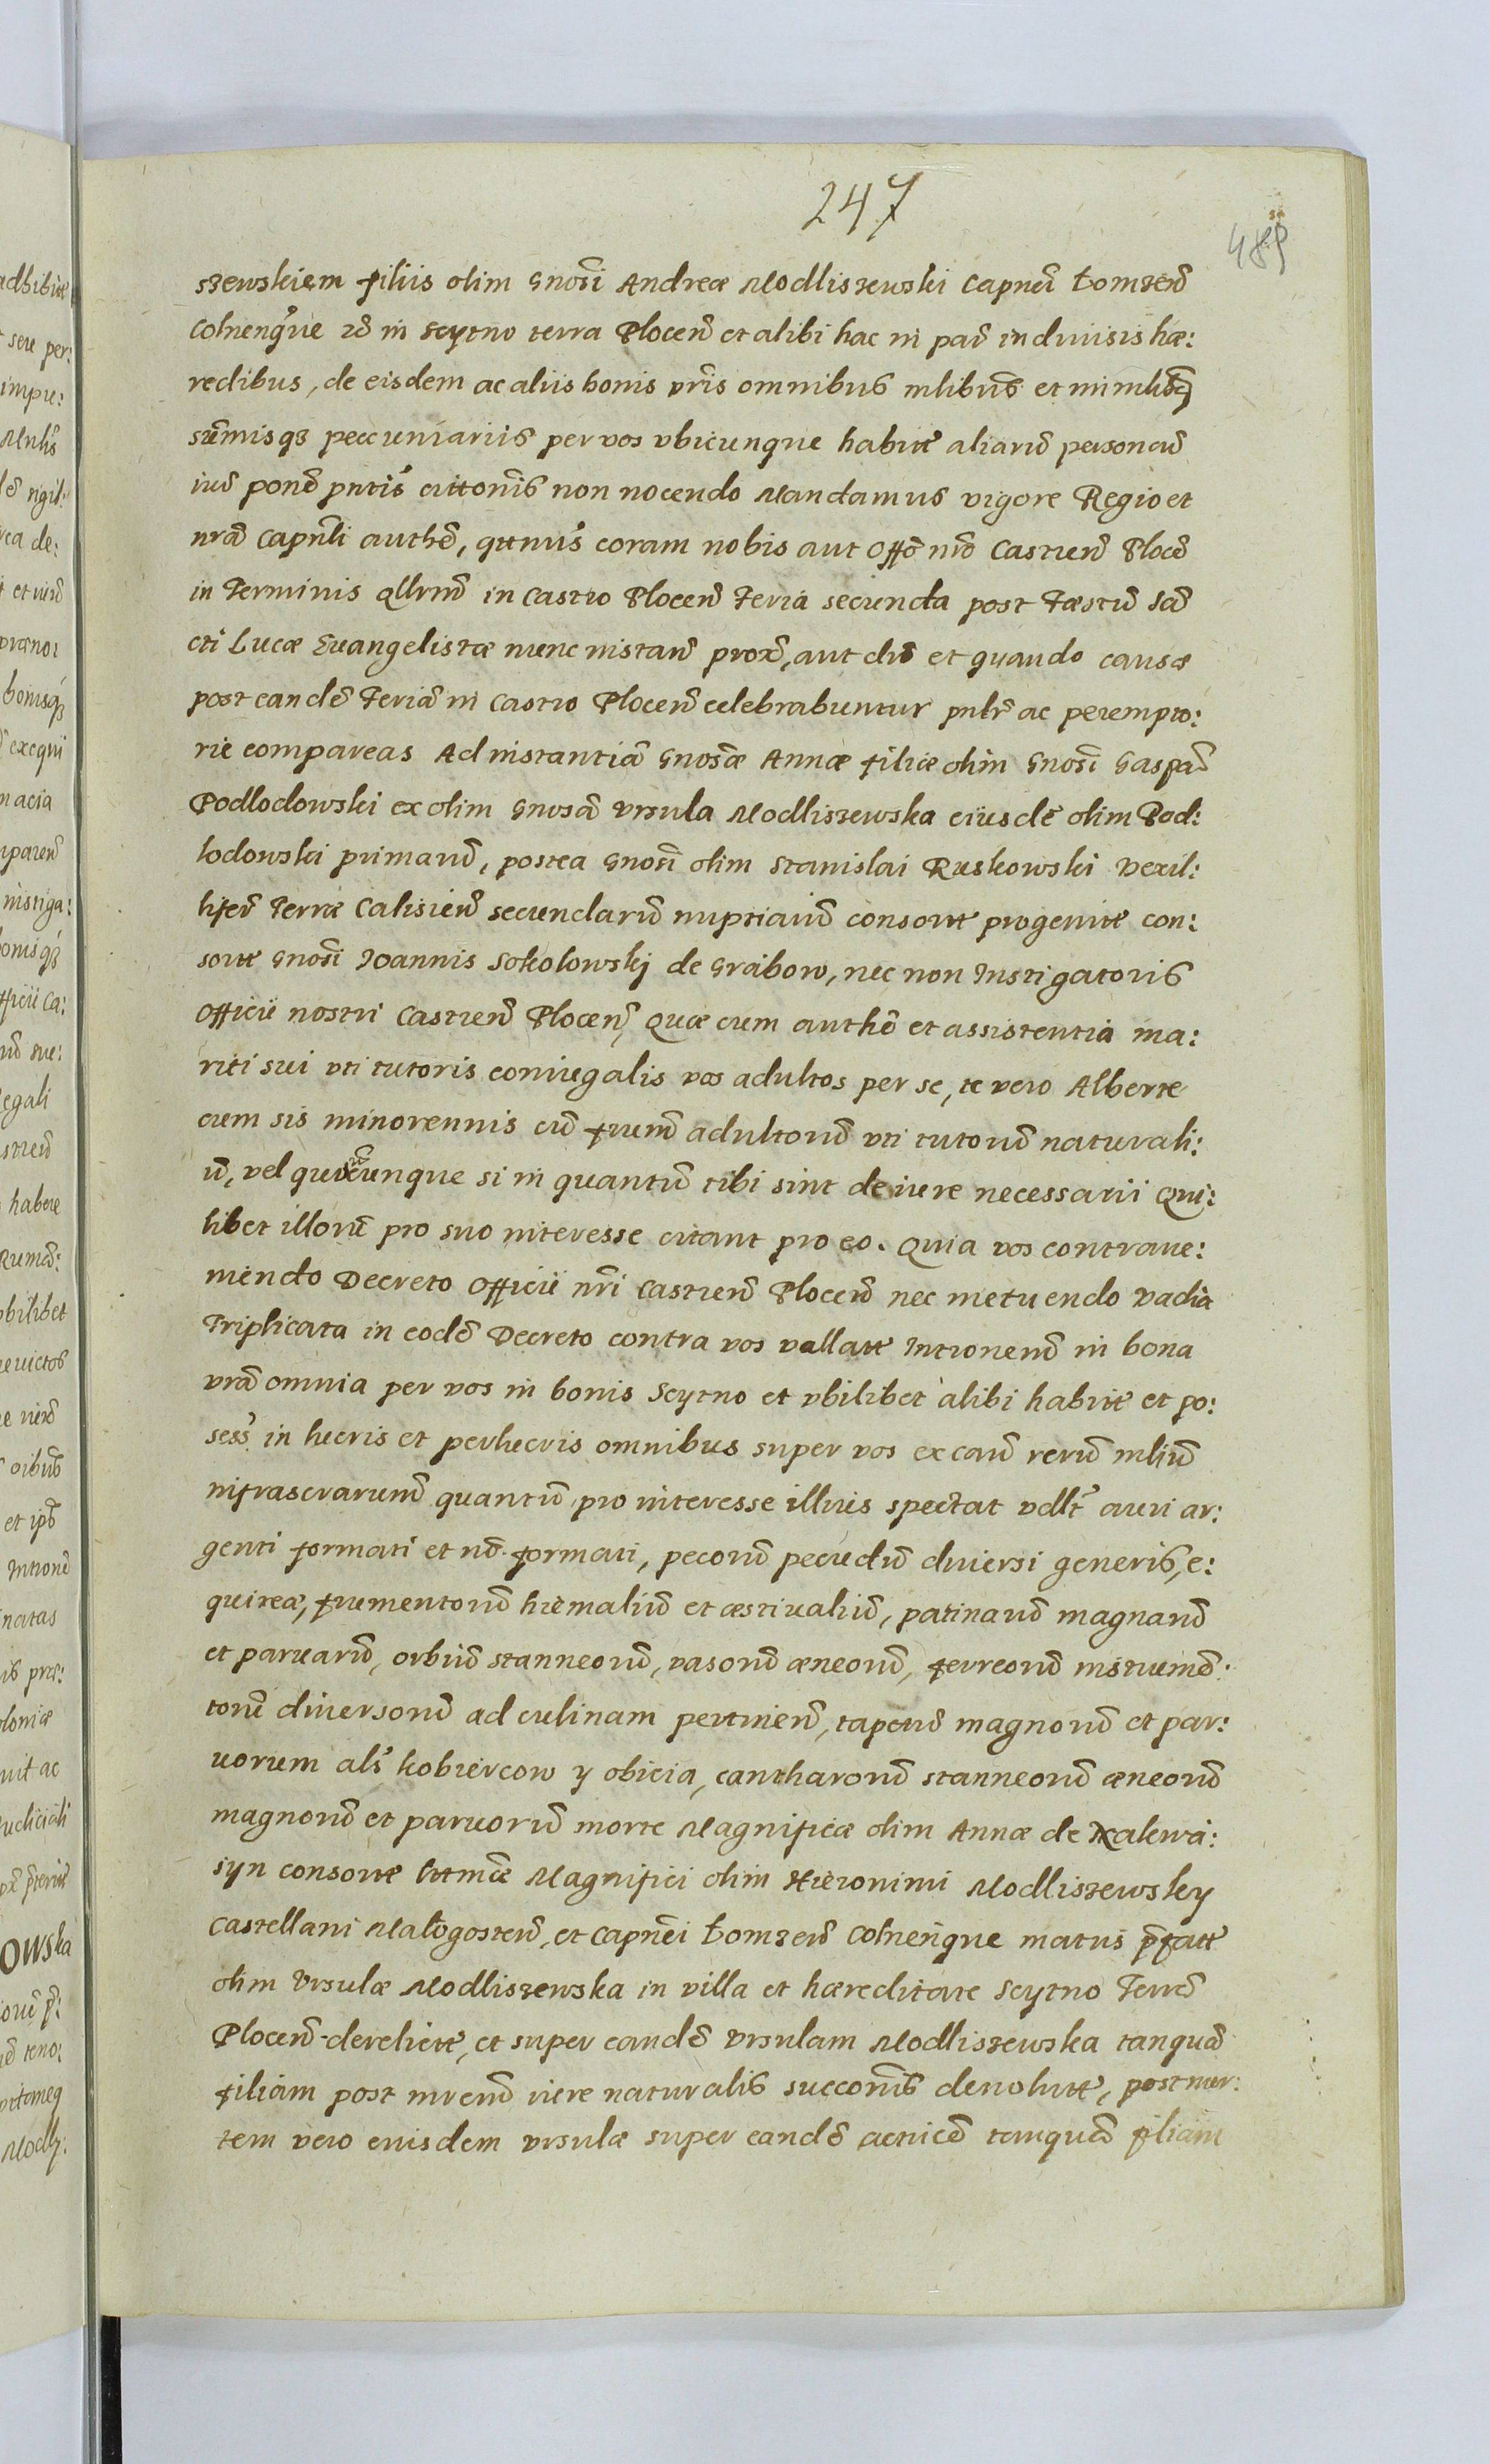 247
489
szewskiem filiis olim Gnosi Andreæ Modliszewski Capnei Łomzen̄
Colnenq̃ue et in Scytno terra Plocen̄ et alibi hac in par indiuisis hæ:
redibus, de eisdem ac aliis bonis vr̃is omnibus mlibus et immlibq̃
sum̃misq3 peccuniariis per vos vbicunque habitt aliarū personarū
iur pond̄ pntis cittonis non nocendo Mandamus vigore Regio et
nrā Capnli authē, qtenus coram nobis aut Offō nrō Castren̄ Ploceñ
in Terminis qllrnū in Castro Plocen̄ Feria secunda post Fæstū San
cti Lucæ Euangelistæ nunc instan̄ prox̄, aut dū et quando causæ
post eandē Feriā in Castro Plocen̄ celebrabuntur pnlr ac perempto:
rie compareas Ad instantiā Gnosæ Annæ filiæ olim Gnosi Gaspar̄
Podlodowski ex olim Gnosa Vrsula Modliszewska eiusdē olim Pod:
lodowski primarū, postea Gnosi olim Stanislai Ruskowski Vexil:
liferi Terræ Calisien̄ secundarū nuptiarū consorte progenitæ con:
sorte Gnosi Ioannis Sokolowskj de Grabow, nec non Instigatoris
Officii nostri Castren̄ Plocen̄, Quæ cum authē et assistentia ma:
riti sui vti tutoris coniugalis vos adultos per se, te vero Alberte
cum sis minorennis cū frum̄ adultorū vti tutorū naturali:
ū, vel quorcunque si in quantū tibi sint de iure necessarii Qui:
libet illorū pro suo interesse citant pro eo. Quia vos contraue:
niendo Decreto Officii nri Castren̄ Plocen̄ nec metuendo vadia
Triplicata in eodē Decreto contra vos vallatt Intronenō in bona
vrā omnia per vos in bonis Scytno et vbilibet alibi habitt et po:
sess in lucris et perlucris omnibus super vos ex caū rerū mliū
infrascrarum̄ quantū pro interesse illius spectat vdlt auri ar:
genti formati et nō formati, pecorū pecudū diuersi generis, e:
quireæ, frumentorū hiemaliū et æstiualiū, patinarū magnarū
et paruarū, orbiū stanneorū, vasorū æneorū, ferreorū instrumē:
torū diuersorū ad culinam pertinen̄, tapetū magnorū et par:
uorum als kobiercow y obicia, cantharorū stanneorū æneorū
magnorū et paruorū morte Magnificæ olim Annæ de Xalewa:
syn consorte lttmæ Magnifici olim Hieronimi Modliszewsky
Castellani Małogosten̄, et Capnei Łomzen̄ Colnenque matris p̄fatt
olim Vrsulæ Modliszewska in villa et hæreditate Scytno Terræ
Plocen̄ derelictt, et super eandē Vrsulam Modliszewska tanquā
filiam post mrem̄ iure naturalis succonis deuolutt, post mor:
tem vero eiusdem Vrsulæ super eandē actricē tanquā filiam